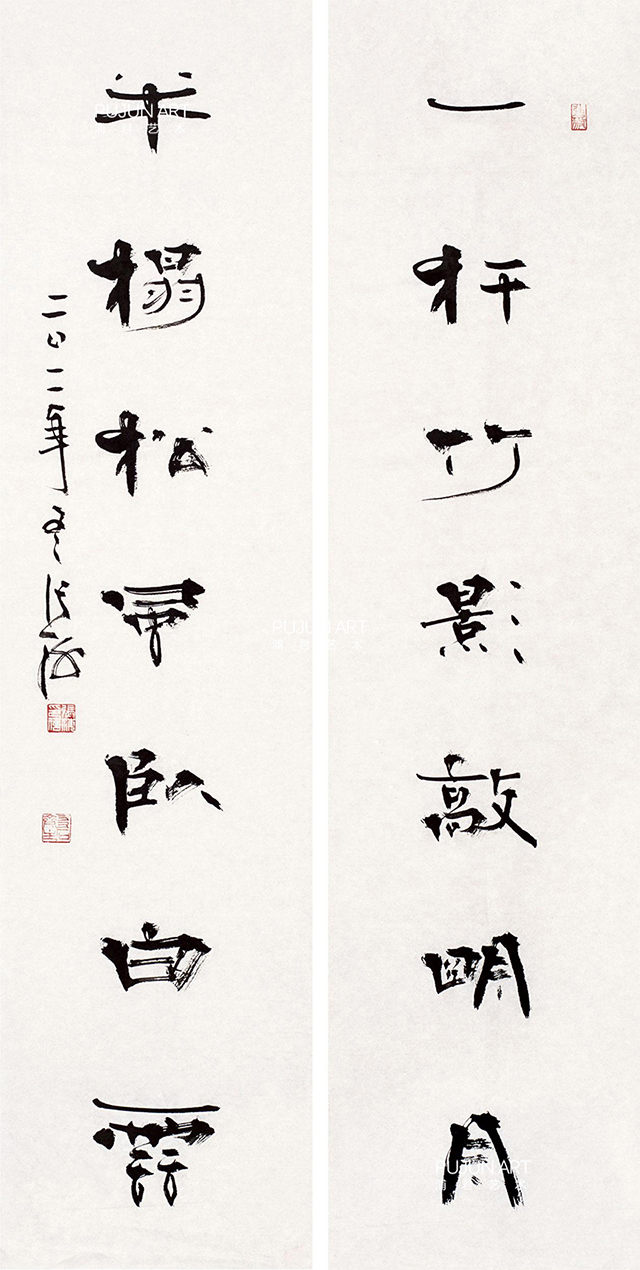 一杆竹影敲明月
半榻松風臥白雲
二〇一一年冬張海
PUJUN ART
PUJUN ART
PUJUN ART